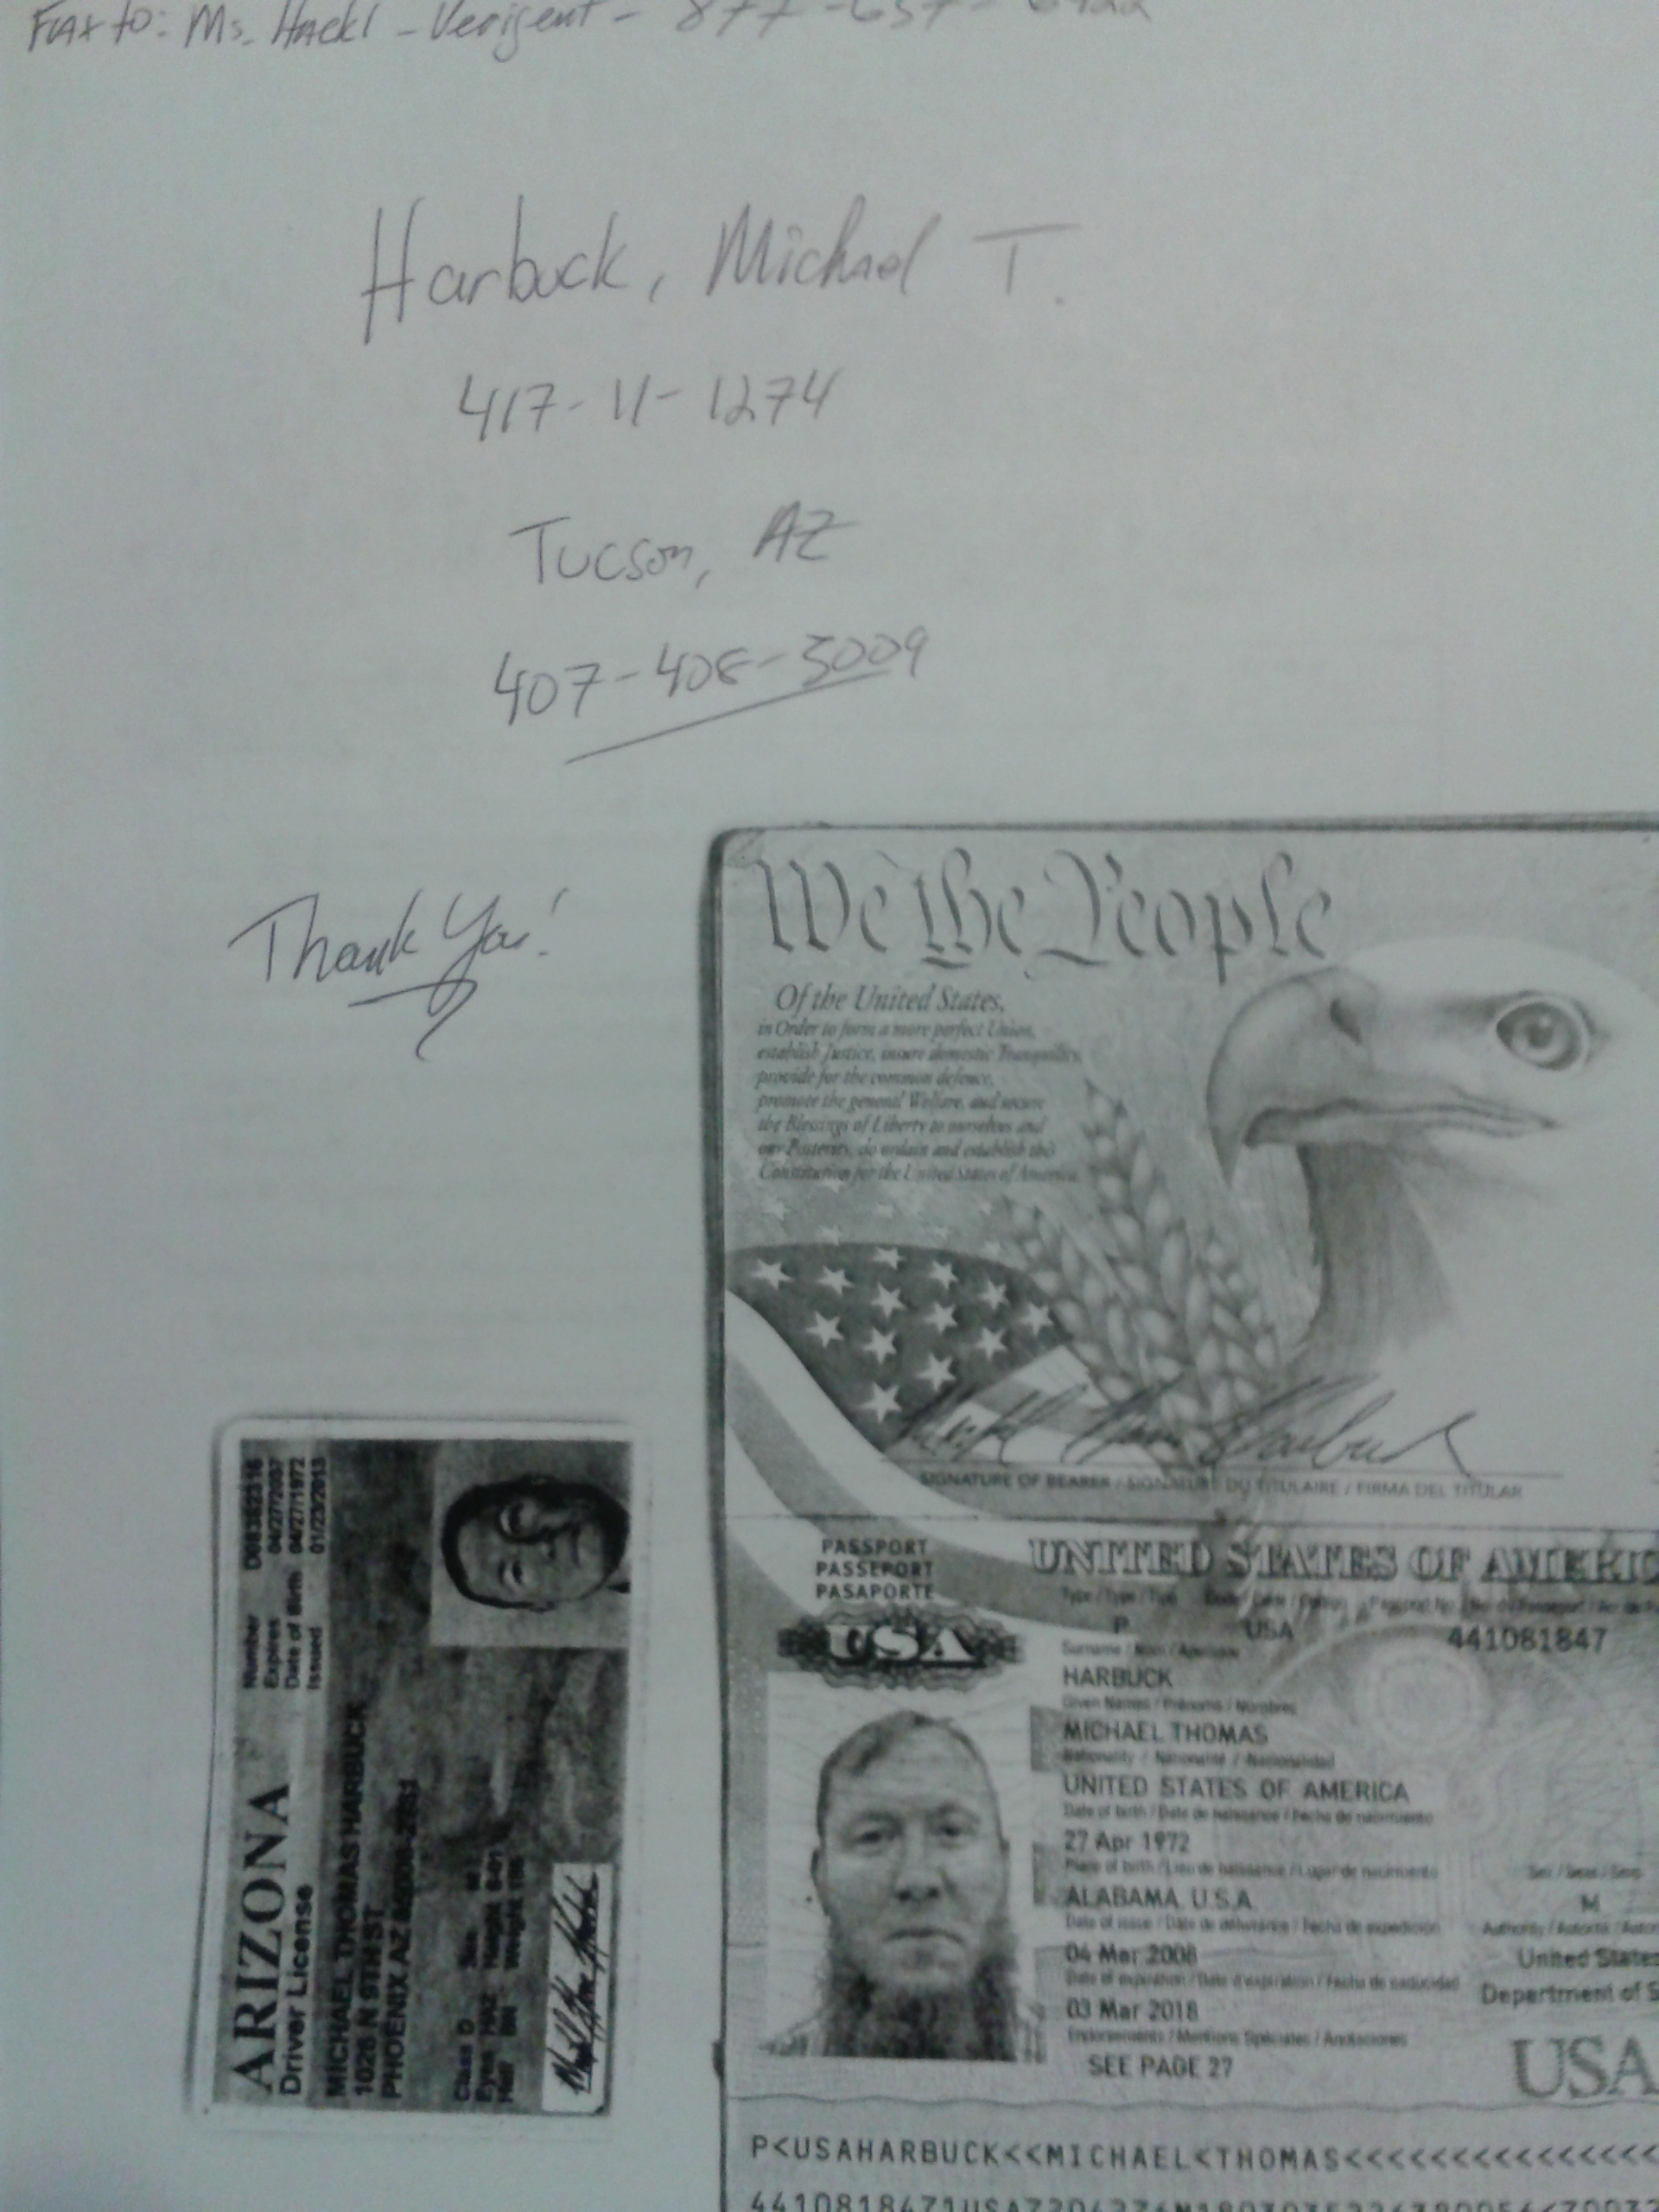 FAX to: Ms. Hackl - Verigent - 877-637-
Harbuck, Michael T.
417-11-1274
Tucson, AZ
407-408-5009
Thank You!
We the People
Of the United States,
in Order to form a more perfect Union,
establish Justice, insure domestic Tranquility,
provide for the common defence,
promote the general Welfare, and secure
the Blessings of Liberty to ourselves and
our Posterity, do ordain and establish this
Constitution for the United States of America.
SIGNATURE OF BEARER / SIGNATURE DU TITULAIRE / FIRMA DEL TITULAR
PASSPORT
PASSEPORT
PASAPORTE
UNITED STATES OF AMERIC
USA
P USA 441081847
Surname / Nom / Apellidos
HARBUCK
Given Names / Prénoms / Nombres
MICHAEL THOMAS
Nationality / Nationalité / Nacionalidad
UNITED STATES OF AMERICA
Date of birth / Date de naissance / Fecha de nacimiento
27 Apr 1972
Place of birth / Lieu de naissance / Lugar de nacimiento Sex / Sexe / Sexo
ALABAMA, U.S.A. M
Date of issue / Date de délivrance / Fecha de expedición
04 Mar 2008 United States
Date of expiration / Date d'expiration / Fecha de caducidad
03 Mar 2018 Department of S
Endorsements / Mentions Spéciales / Anotaciones
SEE PAGE 27
USA
P<USAHARBUCK<<MICHAEL<THOMAS<<<<<<<<<<<<<<<<
ARIZONA
Driver License
Number
Expires 04/27/2037
Date of Birth 04/27/1972
Issued 01/23/2013
MICHAEL THOMAS HARBUCK
1028 N 9TH ST
PHOENIX AZ
Class D
Eyes
Hair
Height
Weight